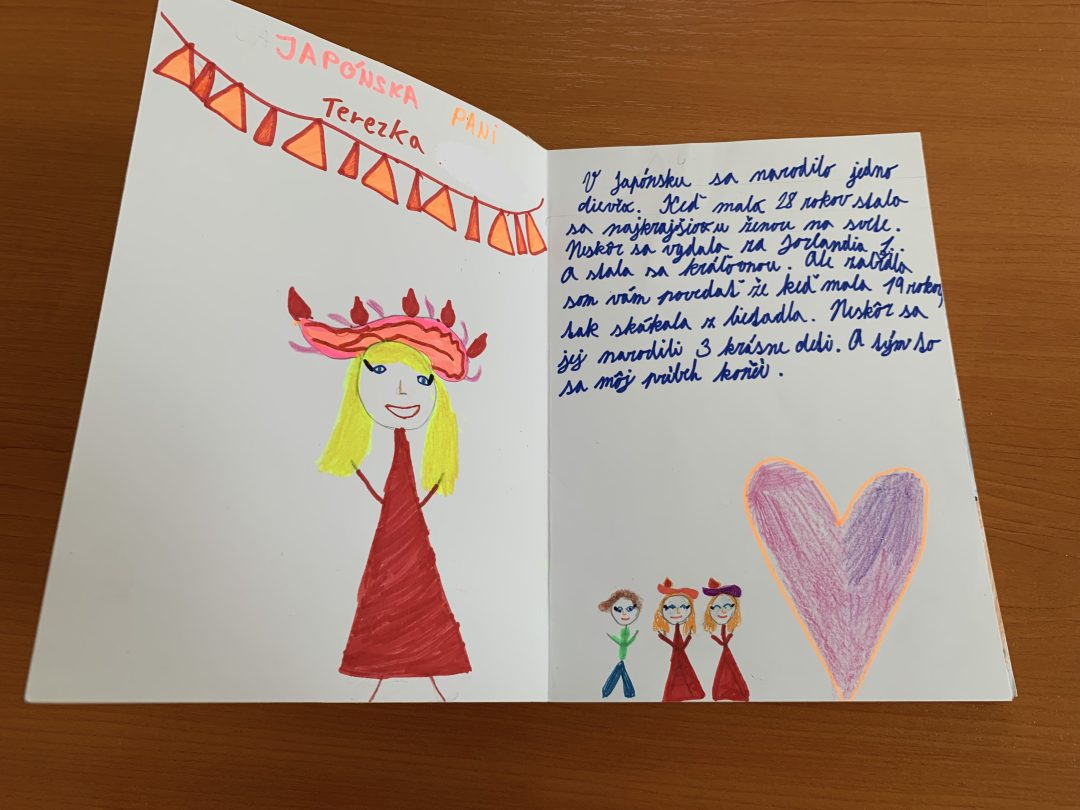 JAPÓNSKA PANI
Terezka
V Japónsku sa narodilo jedno
dievča. Keď mala 28 rokov stala
sa najkrajšiou ženou na svete.
Neskôr sa vydala za Jorlandia 1..
A stala sa kráľovnou. Ale zabudla
som vám povedať že keď mala 19 rokov,
tak skákala z lietadla. Neskôr sa
jej narodili 3 krásne deti. A týmto
sa môj príbeh končí.